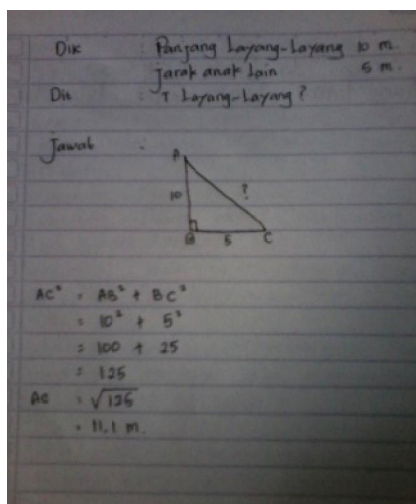 Dik : Panjang Layang-Layang 10 m.
Jarak anak Lain 5 m.
Dit : T Layang-Layang ?
Jawab :
A
10 ?
B 5 C
AC² = AB² + BC²
= 10² + 5²
= 100 + 25
= 125
AC = √125
= 11.1 m.